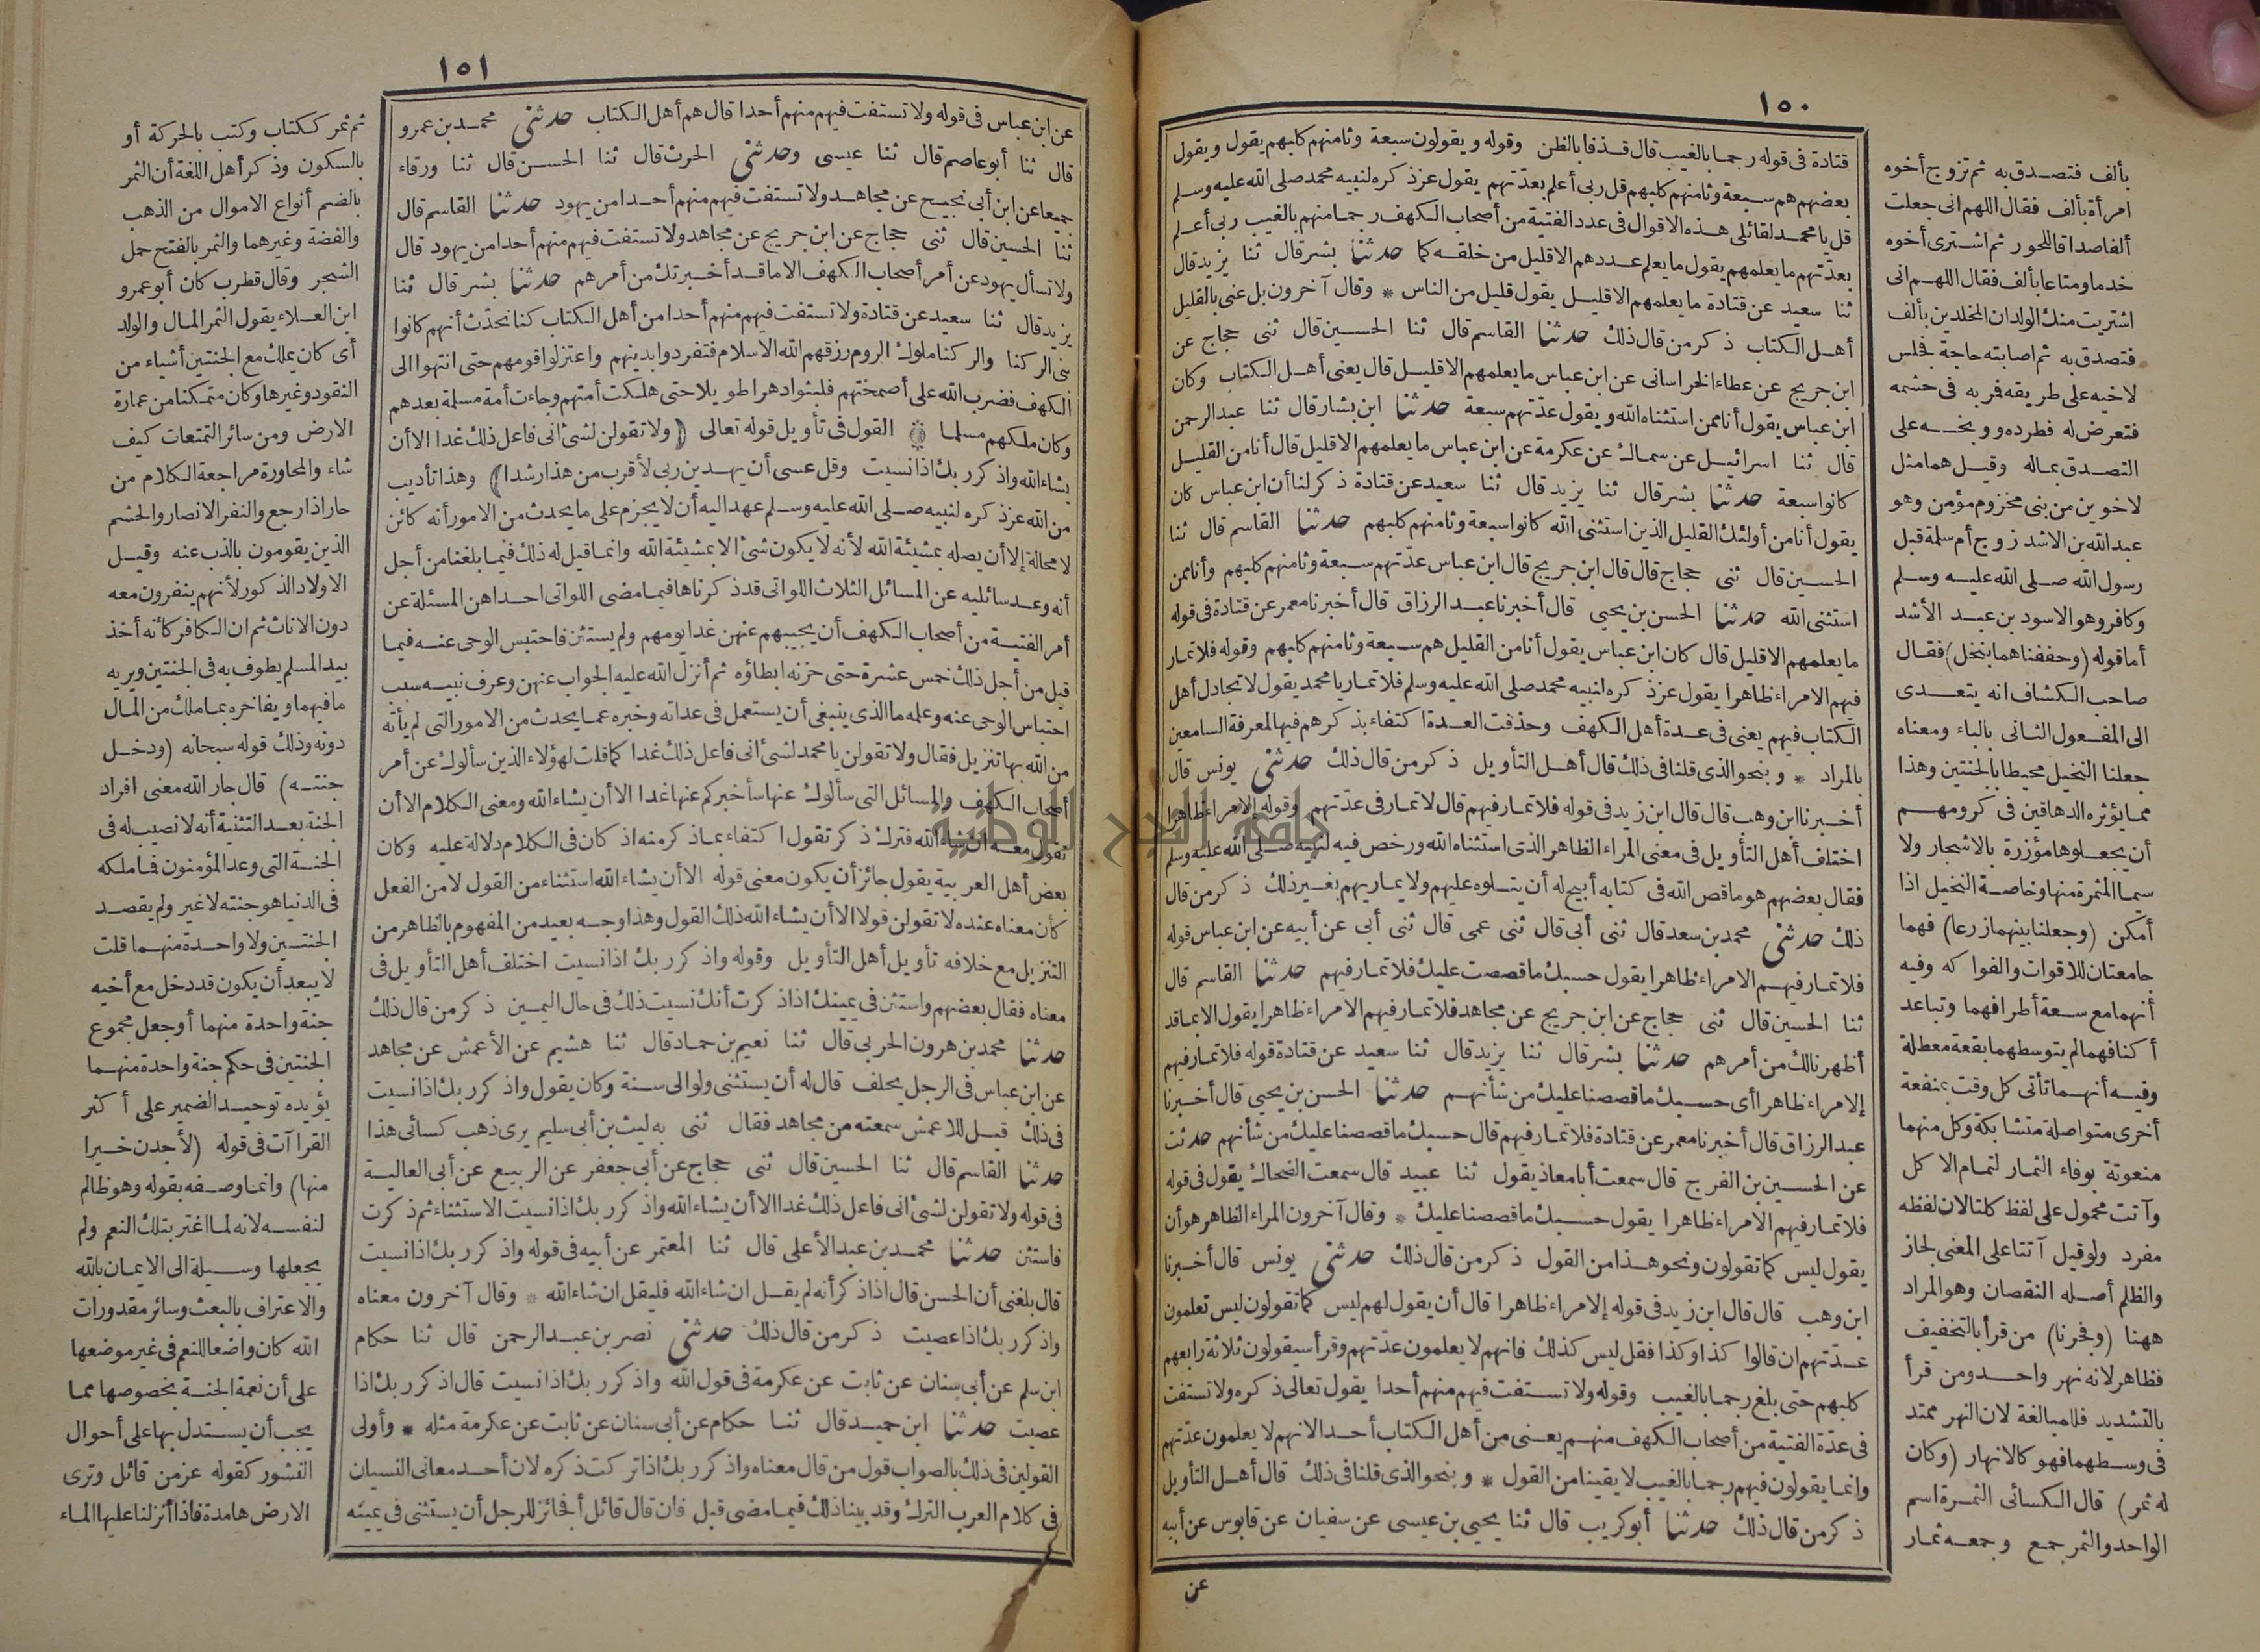 ١٥٠
قتادة فى قوله رجما بالغيب قال قذفا بالظن وقوله ويقولون سبعة وثامنهم كلبهم يقول ويقول
بعضهم هم سبعة وثامنهم كلبهم قل ربى أعلم بعدّتهم يقول عز ذكره لنبيه محمد صلى الله عليه وسلم
قل يا محمد لقائلى هذه الاقوال فى عدد الفتية من أصحاب الكهف رجما منهم بالغيب ربى أعلم
بعدّتهم ما يعلمهم يقول ما يعلم عددهم الا قليل من خلقه كما حدثنا بشر قال ثنا يزيد قال
ثنا سعيد عن قتادة ما يعلمهم الا قليل يقول قليل من الناس * وقال آخرون بل عنى بالقليل
أهل الكتاب ذكر من قال ذلك حدثنا القاسم قال ثنا الحسين قال ثنى حجاج عن
ابن جريج عن عطاء الخراسانى عن ابن عباس ما يعلمهم الا قليل قال يعنى أهل الكتاب وكان
ابن عباس يقول أنا ممن استثناه الله ويقول عدّتهم سبعة حدثنا ابن بشار قال ثنا عبد الرحمن
قال ثنا اسرائيل عن سماك عن عكرمة عن ابن عباس ما يعلمهم الا قليل قال أنا من القليل
كانوا سبعة حدثنا بشر قال ثنا يزيد قال ثنا سعيد عن قتادة ذكر لنا أن ابن عباس كان
يقول أنا من أولئك القليل الذين استثنى الله كانوا سبعة وثامنهم كلبهم حدثنا القاسم قال ثنا
الحسين قال ثنى حجاج قال قال ابن جريج قال ابن عباس عدّتهم سبعة وثامنهم كلبهم وأنا ممن
استثنى الله حدثنا الحسن بن يحيى قال أخبرنا عبد الرزاق قال أخبرنا معمر عن قتادة فى قوله
ما يعلمهم الا قليل قال كان ابن عباس يقول أنا من القليل هم سبعة وثامنهم كلبهم وقوله فلا تمار
فيهم الا مراء ظاهرا يقول عز ذكره لنبيه محمد صلى الله عليه وسلم فلا تمار يا محمد يقول لا تجادل أهل
الكتاب فيهم يعنى فى عدة أهل الكهف وحذفت العدة اكتفاء بذكرهم فيها لمعرفة السامعين
بالمراد * وبنحو الذى قلنا فى ذلك قال أهل التأويل ذكر من قال ذلك حدثنى يونس قال
أخبرنا ابن وهب قال قال ابن زيد فى قوله فلا تمار فيهم قال لا تمار فى عدّتهم وقوله إلا مراء ظاهرا
اختلف أهل التأويل فى معنى المراء الظاهر الذى استثناه الله ورخص فيه لنبيه صلى الله عليه وسلم
فقال بعضهم هو ما قص الله فى كتابه أبيح له أن يتلوه عليهم ولا يماريهم بغير ذلك ذكر من قال
ذلك حدثنى محمد بن سعد قال ثنى أبى قال ثنى عمى قال ثنى أبى عن أبيه عن ابن عباس قوله
فلا تمار فيهم الا مراء ظاهرا يقول حسبك ما قصصت عليك فلا تمار فيهم حدثنا القاسم قال
ثنا الحسين قال ثنى حجاج عن ابن جريج عن مجاهد فلا تمار فيهم الا مراء ظاهرا يقول الا بما قد
أظهرنا لك من أمرهم حدثنا بشر قال ثنا يزيد قال ثنا سعيد عن قتادة قوله فلا تمار فيهم
إلا مراء ظاهرا أى حسبك ما قصصنا عليك من شأنهم حدثنا الحسن بن يحيى قال أخبرنا
عبد الرزاق قال أخبرنا معمر عن قتادة فلا تمار فيهم قال حسبك ما قصصنا عليك من شأنهم حدثت
عن الحسين بن الفرج قال سمعت أبا معاذ يقول ثنا عبيد قال سمعت الضحاك يقول فى قوله
فلا تمار فيهم الا مراء ظاهرا يقول حسبك ما قصصنا عليك * وقال آخرون المراء الظاهر هو أن
يقول ليس كما تقولون ونحو هذا من القول ذكر من قال ذلك حدثنى يونس قال أخبرنا
ابن وهب قال قال ابن زيد فى قوله إلا مراء ظاهرا قال أن يقول لهم ليس كما تقولون ليس تعلمون
عدّتهم ان قالوا كذا وكذا فقل ليس كذلك فانهم لا يعلمون عدّتهم وقرأ سيقولون ثلاثة رابعهم
كلبهم حتى بلغ رجما بالغيب وقوله ولا تستفت فيهم منهم أحدا يقول تعالى ذكره ولا تستفت
فى عدّة الفتية من أصحاب الكهف منهم يعنى من أهل الكتاب أحدا لانهم لا يعلمون عدّتهم
وانما يقولون فيهم رجما بالغيب لا يقينا من القول * وبنحو الذى قلنا فى ذلك قال أهل التأويل
ذكر من قال ذلك حدثنا أبو كريب قال ثنا يحيى بن عيسى عن سفيان عن قابوس عن أبيه
عن
بألف فتصدق به ثم تزوج أخوه
امرأة بألف فقال اللهم انى جعلت
ألفا صداقا للحور ثم اشترى أخوه
خدما ومتاعا بألف فقال اللهم انى
اشتريت منك الولدان المخلدين بألف
فتصدق به ثم اصابته حاجة فجلس
لاخيه على طريقه فمر به فى حشمه
فتعرض له فطرده ووبخه على
التصدق بماله وقيل هما مثل
لاخوين من بنى مخزوم مؤمن وهو
عبد الله بن الاشد زوج أم سلمة قبل
رسول الله صلى الله عليه وسلم
وكافر وهو الاسود بن عبد الأشد
أما قوله (وحففناهما بنخل) فقال
صاحب الكشاف انه يتعدى
الى المفعول الثانى بالباء ومعناه
جعلنا النخيل محيطا بالجنتين وهذا
مما يؤثره الدهاقين فى كرومهم
أن يجعلوها مؤزرة بالاشجار ولا
سيما المثمرة منها وخاصة النخيل اذا
أمكن (وجعلنا بينهما زرعا) فهما
جامعتان للاقوات والفواكه وفيه
أنهما مع سعة أطرافهما وتباعد
أكنافهما لم يتوسطهما بقعة معطلة
وفيه أنهما تأتى كل وقت بمنفعة
أخرى متواصلة متشابكة وكل منهما
منعوتة بوفاء الثمار لتمام الاكل
وآتت محمول على لفظ كلتا لان لفظه
مفرد ولو قيل آتتا على المعنى لجاز
والظلم أصله النقصان وهو المراد
ههنا (وفجرنا) من قرأ بالتخفيف
فظاهر لانه نهر واحد ومن قرأ
بالتشديد فللمبالغة لان النهر ممتد
فى وسطهما فهو كالانهار (وكان
له ثمر) قال الكسائى الثمرة اسم
الواحد والثمر جمع وجمعه ثمار
١٥١
عن ابن عباس فى قوله ولا تستفت فيهم منهم أحدا قال هم أهل الكتاب حدثنى محمد بن عمرو
قال ثنا أبو عاصم قال ثنا عيسى وحدثنى الحرث قال ثنا الحسن قال ثنا ورقاء
جميعا عن ابن أبى نجيح عن مجاهد ولا تستفت فيهم منهم أحدا من يهود حدثنا القاسم قال
ثنا الحسين قال ثنى حجاج عن ابن جريج عن مجاهد ولا تستفت فيهم منهم أحدا من يهود قال
ولا تسأل يهود عن أمر أصحاب الكهف الا ما قد أخبرتك من أمرهم حدثنا بشر قال ثنا
يزيد قال ثنا سعيد عن قتادة ولا تستفت فيهم منهم أحدا من أهل الكتاب كنا نحدّث أنهم كانوا
بنى الركنا والركنا ملوك الروم رزقهم الله الاسلام فتفردوا بدينهم واعتزلوا قومهم حتى انتهوا الى
الكهف فضرب الله على أصمختهم فلبثوا دهرا طويلا حتى هلكت أمتهم وجاءت أمة مسلمة بعدهم
وكان ملكهم مسلما ۞ القول فى تأويل قوله تعالى (ولا تقولن لشئ انى فاعل ذلك غدا الا أن
يشاء الله واذكر ربك اذا نسيت وقل عسى أن يهدين ربى لأقرب من هذا رشدا) وهذا تأديب
من الله عز ذكره لنبيه صلى الله عليه وسلم عهد اليه أن لا يجزم على ما يحدث من الامور أنه كائن
لا محالة إلا أن يصله بمشيئة الله لأنه لا يكون شئ الا بمشيئة الله وانما قيل له ذلك فيما بلغنا من أجل
أنه وعد سائليه عن المسائل الثلاث اللواتى قد ذكرناها فيما مضى اللواتى احداهن المسئلة عن
أمر الفتية من أصحاب الكهف أن يجيبهم عنهن غد يومهم ولم يستثن فاحتبس الوحى عنه فيما
قيل من أجل ذلك خمس عشرة حتى حزنه ابطاؤه ثم أنزل الله عليه الجواب عنهن وعرف نبيه سبب
احتباس الوحى عنه وعلمه ما الذى ينبغى أن يستعمل فى عداته وخبره عما يحدث من الامور التى لم يأته
من الله بها تنزيل فقال ولا تقولن يا محمد لشئ انى فاعل ذلك غدا كما قلت لهؤلاء الذين سألوك عن أمر
أصحاب الكهف والمسائل التى سألوك عنها سأخبركم عنها غدا الا أن يشاء الله ومعنى الكلام الا أن
تقول معه ان شاء الله فترك ذكر تقول اكتفاء بما ذكر منه اذ كان فى الكلام دلالة عليه وكان
بعض أهل العربية يقول جائز أن يكون معنى قوله الا أن يشاء الله استثناء من القول لا من الفعل
كأن معناه عنده لا تقولن قولا الا أن يشاء الله ذلك القول وهذا وجه بعيد من المفهوم بالظاهر من
التنزيل مع خلافه تأويل أهل التأويل وقوله واذكر ربك اذا نسيت اختلف أهل التأويل فى
معناه فقال بعضهم واستثن فى يمينك اذا ذكرت أنك نسيت ذلك فى حال اليمين ذكر من قال ذلك
حدثنا محمد بن هرون الحربى قال ثنا نعيم بن حماد قال ثنا هشيم عن الأعمش عن مجاهد
عن ابن عباس فى الرجل يحلف قال له أن يستثنى ولو الى سنة وكان يقول واذكر ربك اذا نسيت
فى ذلك قيل للاعمش سمعته من مجاهد فقال ثنى به ليث بن أبى سليم يرى ذهب كسائى هذا
حدثنا القاسم قال ثنا الحسين قال ثنى حجاج عن أبى جعفر عن الربيع عن أبى العالية
فى قوله ولا تقولن لشئ انى فاعل ذلك غدا الا أن يشاء الله واذكر ربك اذا نسيت الاستثناء ثم ذكرت
فاستثن حدثنا محمد بن عبد الأعلى قال ثنا المعتمر عن أبيه فى قوله واذكر ربك اذا نسيت
قال بلغنى أن الحسن قال اذا ذكر أنه لم يقل ان شاء الله فليقل ان شاء الله * وقال آخرون معناه
واذكر ربك اذا عصيت ذكر من قال ذلك حدثنى نصر بن عبد الرحمن قال ثنا حكام
ابن سلم عن أبى سنان عن ثابت عن عكرمة فى قول الله واذكر ربك اذا نسيت قال اذكر ربك اذا
عصيت حدثنا ابن حميد قال ثنا حكام عن أبى سنان عن ثابت عن عكرمة مثله * وأولى
القولين فى ذلك بالصواب قول من قال معناه واذكر ربك اذا تركت ذكره لان أحد معانى النسيان
فى كلام العرب الترك وقد بينا ذلك فيما مضى قبل فان قال قائل أفجائز للرجل أن يستثنى فى يمينه
ثم ثمر ككتاب وكتب بالحركة أو
بالسكون وذكر أهل اللغة أن الثمر
بالضم أنواع الاموال من الذهب
والفضة وغيرهما والثمر بالفتح حمل
الشجر وقال قطرب كان أبو عمرو
ابن العلاء يقول الثمر المال والولد
أى كان يملك مع الجنتين أشياء من
النقود وغيرها وكان متمكنا من عمارة
الارض ومن سائر التمتعات كيف
شاء والمحاورة مراجعة الكلام من
حار اذا رجع والنفر الانصار والحشم
الذين يقومون بالذب عنه وقيل
الاولاد الذكور لأنهم ينفرون معه
دون الاناث ثم ان الكافر كأنه أخذ
بيد المسلم يطوف به فى الجنتين ويريه
ما فيهما ويفاخره بما ملك من المال
دونه وذلك قوله سبحانه (ودخل
جنته) قال جار الله معنى افراد
الجنة بعد التثنية أنه لا نصيب له فى
الجنة التى وعد المؤمنون فما ملكه
فى الدنيا هو جنته لا غير ولم يقصد
الجنتين ولا واحدة منهما قلت
لا يبعد أن يكون قد دخل مع أخيه
جنة واحدة منهما أو جعل مجموع
الجنتين فى حكم جنة واحدة منهما
يؤيده توحيد الضمير على أكثر
القراآت فى قوله (لأجدن خيرا
منها) وانما وصفه بقوله وهو ظالم
لنفسه لانه لما اغتر بتلك النعم ولم
يجعلها وسيلة الى الايمان بالله
والاعتراف بالبعث وسائر مقدورات
الله كان واضعا للنعم فى غير موضعها
على أن نعمة الجنة بخصوصها مما
يجب أن يستدل بها على أحوال
النشور كقوله عز من قائل وترى
الارض هامدة فاذا أنزلنا عليها الماء
جامعة النجاح الوطنية